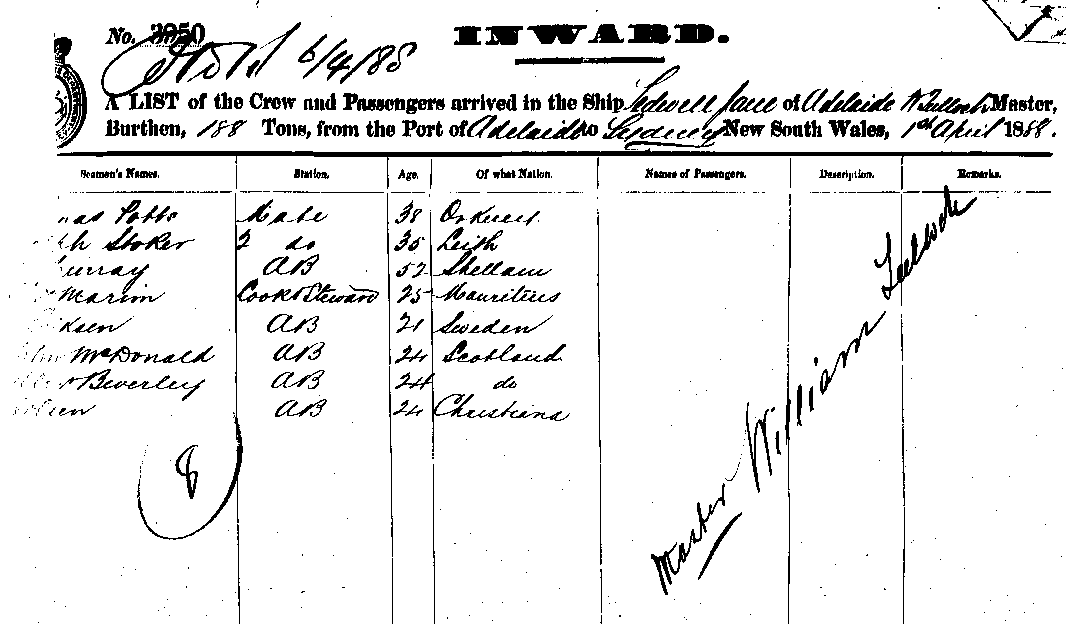 No. 3950
INWARD.
6/4/88
A LIST of the Crew and Passengers arrived in the Ship Ledwell Jane of Adelaide Master,
Burthen, 188 Tons, from the Port of Adelaide to Sydney New South Wales, 1st April 1888.
Seamen's Names. Station. Age. Of what Nation. Names of Passengers. Description. Remarks.
Potts Mate 38 Orkney
Stoker 2 do 35 Leith
urray AB 52
Marim Cook & Steward 25 Mauritius
ksen AB 21 Sweden
McDonald AB 24 Scotland
Beverley AB 24 do
AB 24 Christiana
8
Master William